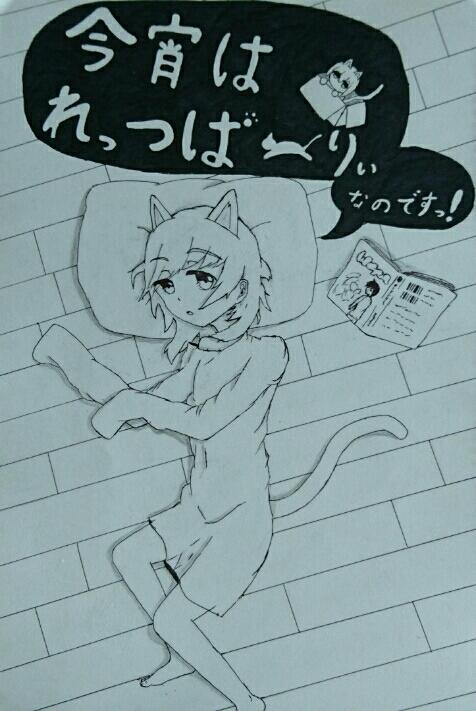 今宵は
れっつぱーりぃ
なのですっ!